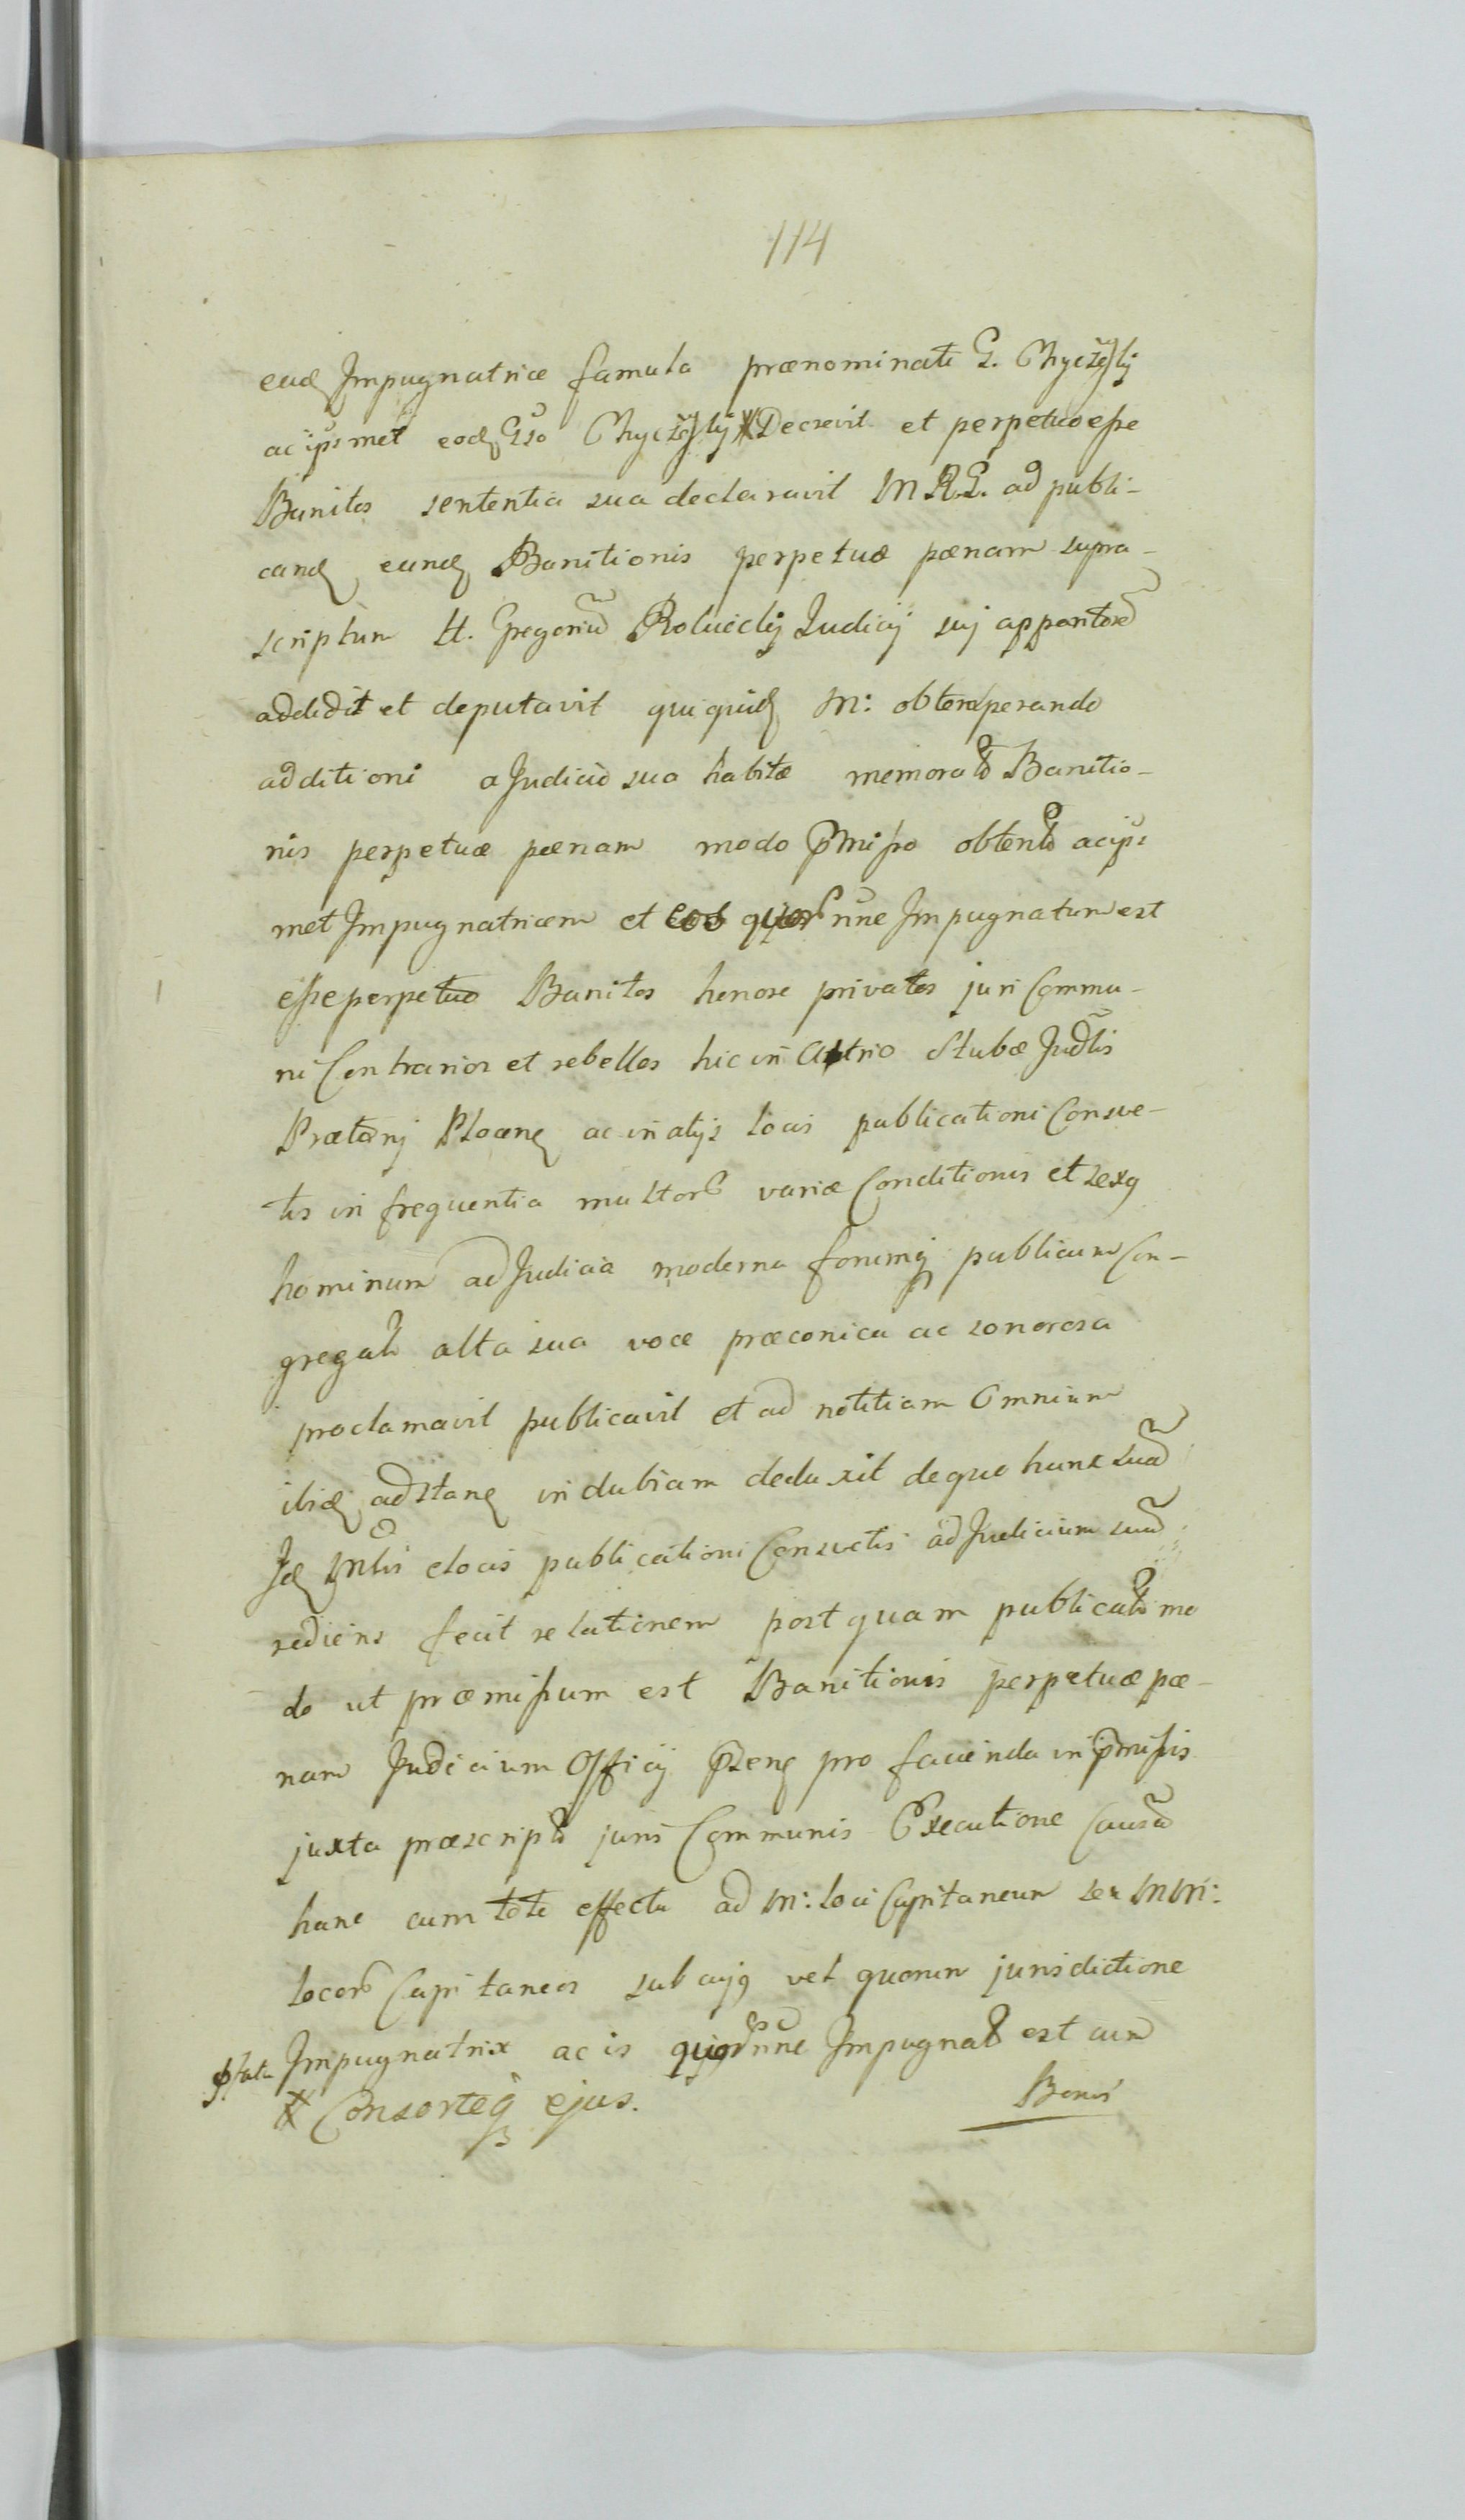 114
ead Impugnatrice famula prænominati G. Chyczewskij
ac ipsmet eod Gso Chyczewskij X Decrevit et perpetuo esse
Banitos sententia sua declaravit M R. G. ad publi-
cand eand Banitionis perpetuæ pænam supra-
scriptum H. Gregoriū Judicij sui apparitorē
addidit et deputavit qui quid M: obtemperando
additioni a Judicio suo habitæ memorata Banitio-
nis perpetuæ pænam modo præmisso obtenta ac ips
met Impugnatricem et eos quor nne Impugnatum est
esse perpetuo Banitos honore privatos juri Commu-
ni Contrarios et rebelles hic in Atrio Stubæ Judlis
Prætorij Plocen ac in alijs locis publicationi Consue-
tis in frequentia multor variæ Conditionis et sexq
hominum ad Judicia moderna forumq publicum Con-
gregatr alta sua voce præconica ac sonorosa
proclamavit publicavit et ad notitiam Omnium
ibid adstan indubiam deduxit de quo hunc suā
Id Mlis e locis publicationi Consuetis ad Judicium suū
rediens fecit relationem post quam publicata mo
do ut præmissum est Banitionis perpetuæ pæ-
nam Judicium Officij Præsens pro facienda in præmissis
juxta præscripta juris Communis Executione Causā
hanc cum toto effectu ad M: loci Capitaneum seu MM:
locor Capitaneos sub cujq vel quorum jurisdictione
Impugnatrix ac is quor nne Impugnat est cum
X Consorteq ejus.
Bonis